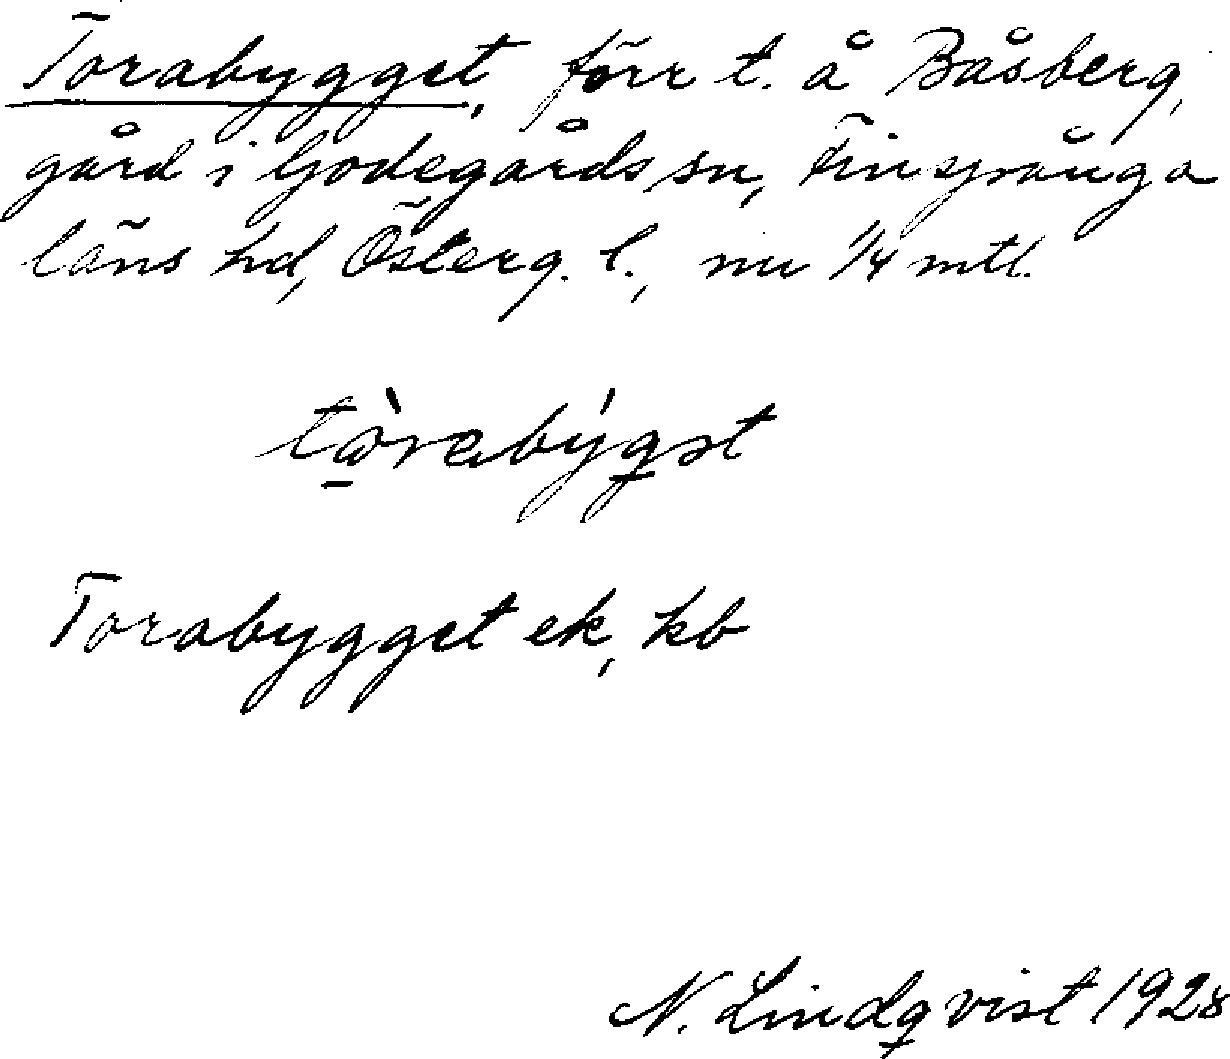 Torabygget, förr t. å Båsberg,
gård i Godegårds sn, Finspånga
läns hd, Österg. l., nu 1/4 mtl.
tòrabýgət
Torabygget ek, kb
N. Lindqvist 1928